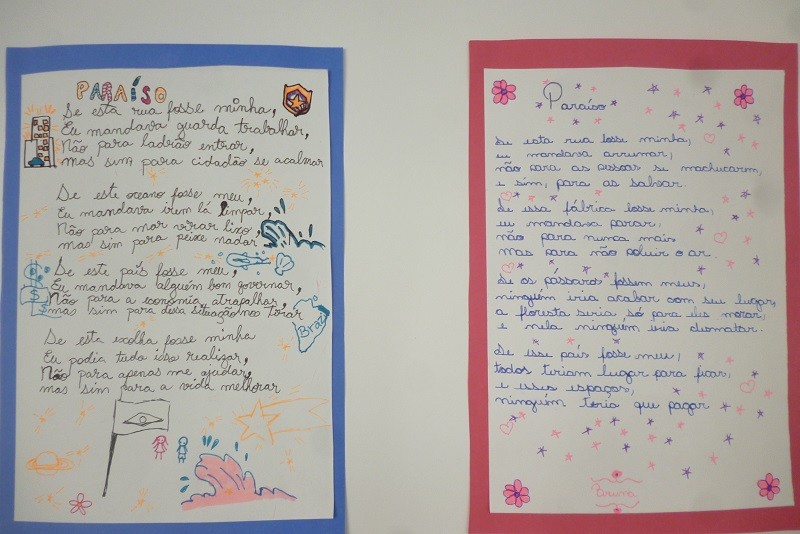 PARAÍSO
Se esta rua fosse minha,
Eu mandava guarda trabalhar,
Não para ladrão entrar,
mas sim para cidadão se acalmar
Se este oceano fosse meu,
Eu mandava irem lá limpar,
Não para mar virar lixo,
mas sim para peixe nadar
Se este país fosse meu,
Eu mandava alguém bom governar,
Não para a economia atrapalhar,
mas sim para dessa situação nos tirar
Brazil
Se esta escolha fosse minha
Eu podia tudo isso realizar,
Não para apenas me ajudar,
mas sim para a vida melhorar
Paraíso
Se esta rua fosse minha,
eu mandava arrumar,
não para as pessoas se machucarem,
e sim, para as salvar.
Se essa fábrica fosse minha,
eu mandava parar,
não para nunca mais
mas para não poluir o ar.
Se os pássaros fossem meus,
ninguém iria acabar com seu lugar,
a floresta seria só para eles morar,
e nela ninguém iria desmatar.
Se esse país fosse meu,
todos teriam lugar para ficar,
e esses espaços,
ninguém teria que pagar
Bruna